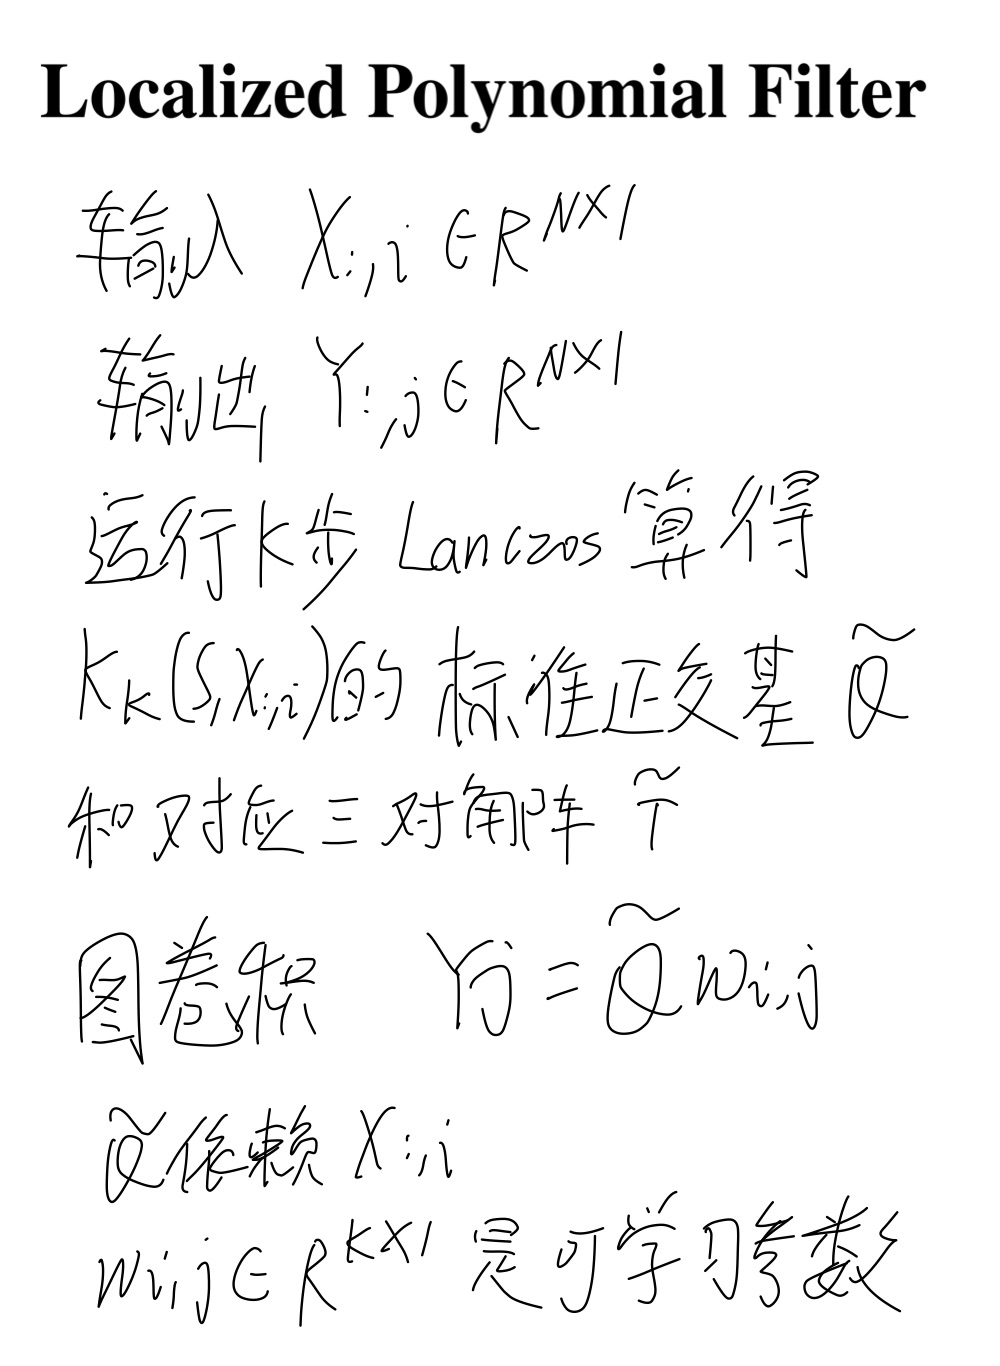 Localized Polynomial Filter
输入 X:,i ∈ R^{N×1}
输出 Y:,j ∈ R^{N×1}
运行K步 Lanczos 算得
K_K(S,X:,i)的 标准正交基 Q̃
和对应三对角阵 T̃
图卷积 Yj = Q̃ wi,j
Q̃依赖 X:,i
wi,j ∈ R^{K×1} 是可学习参数